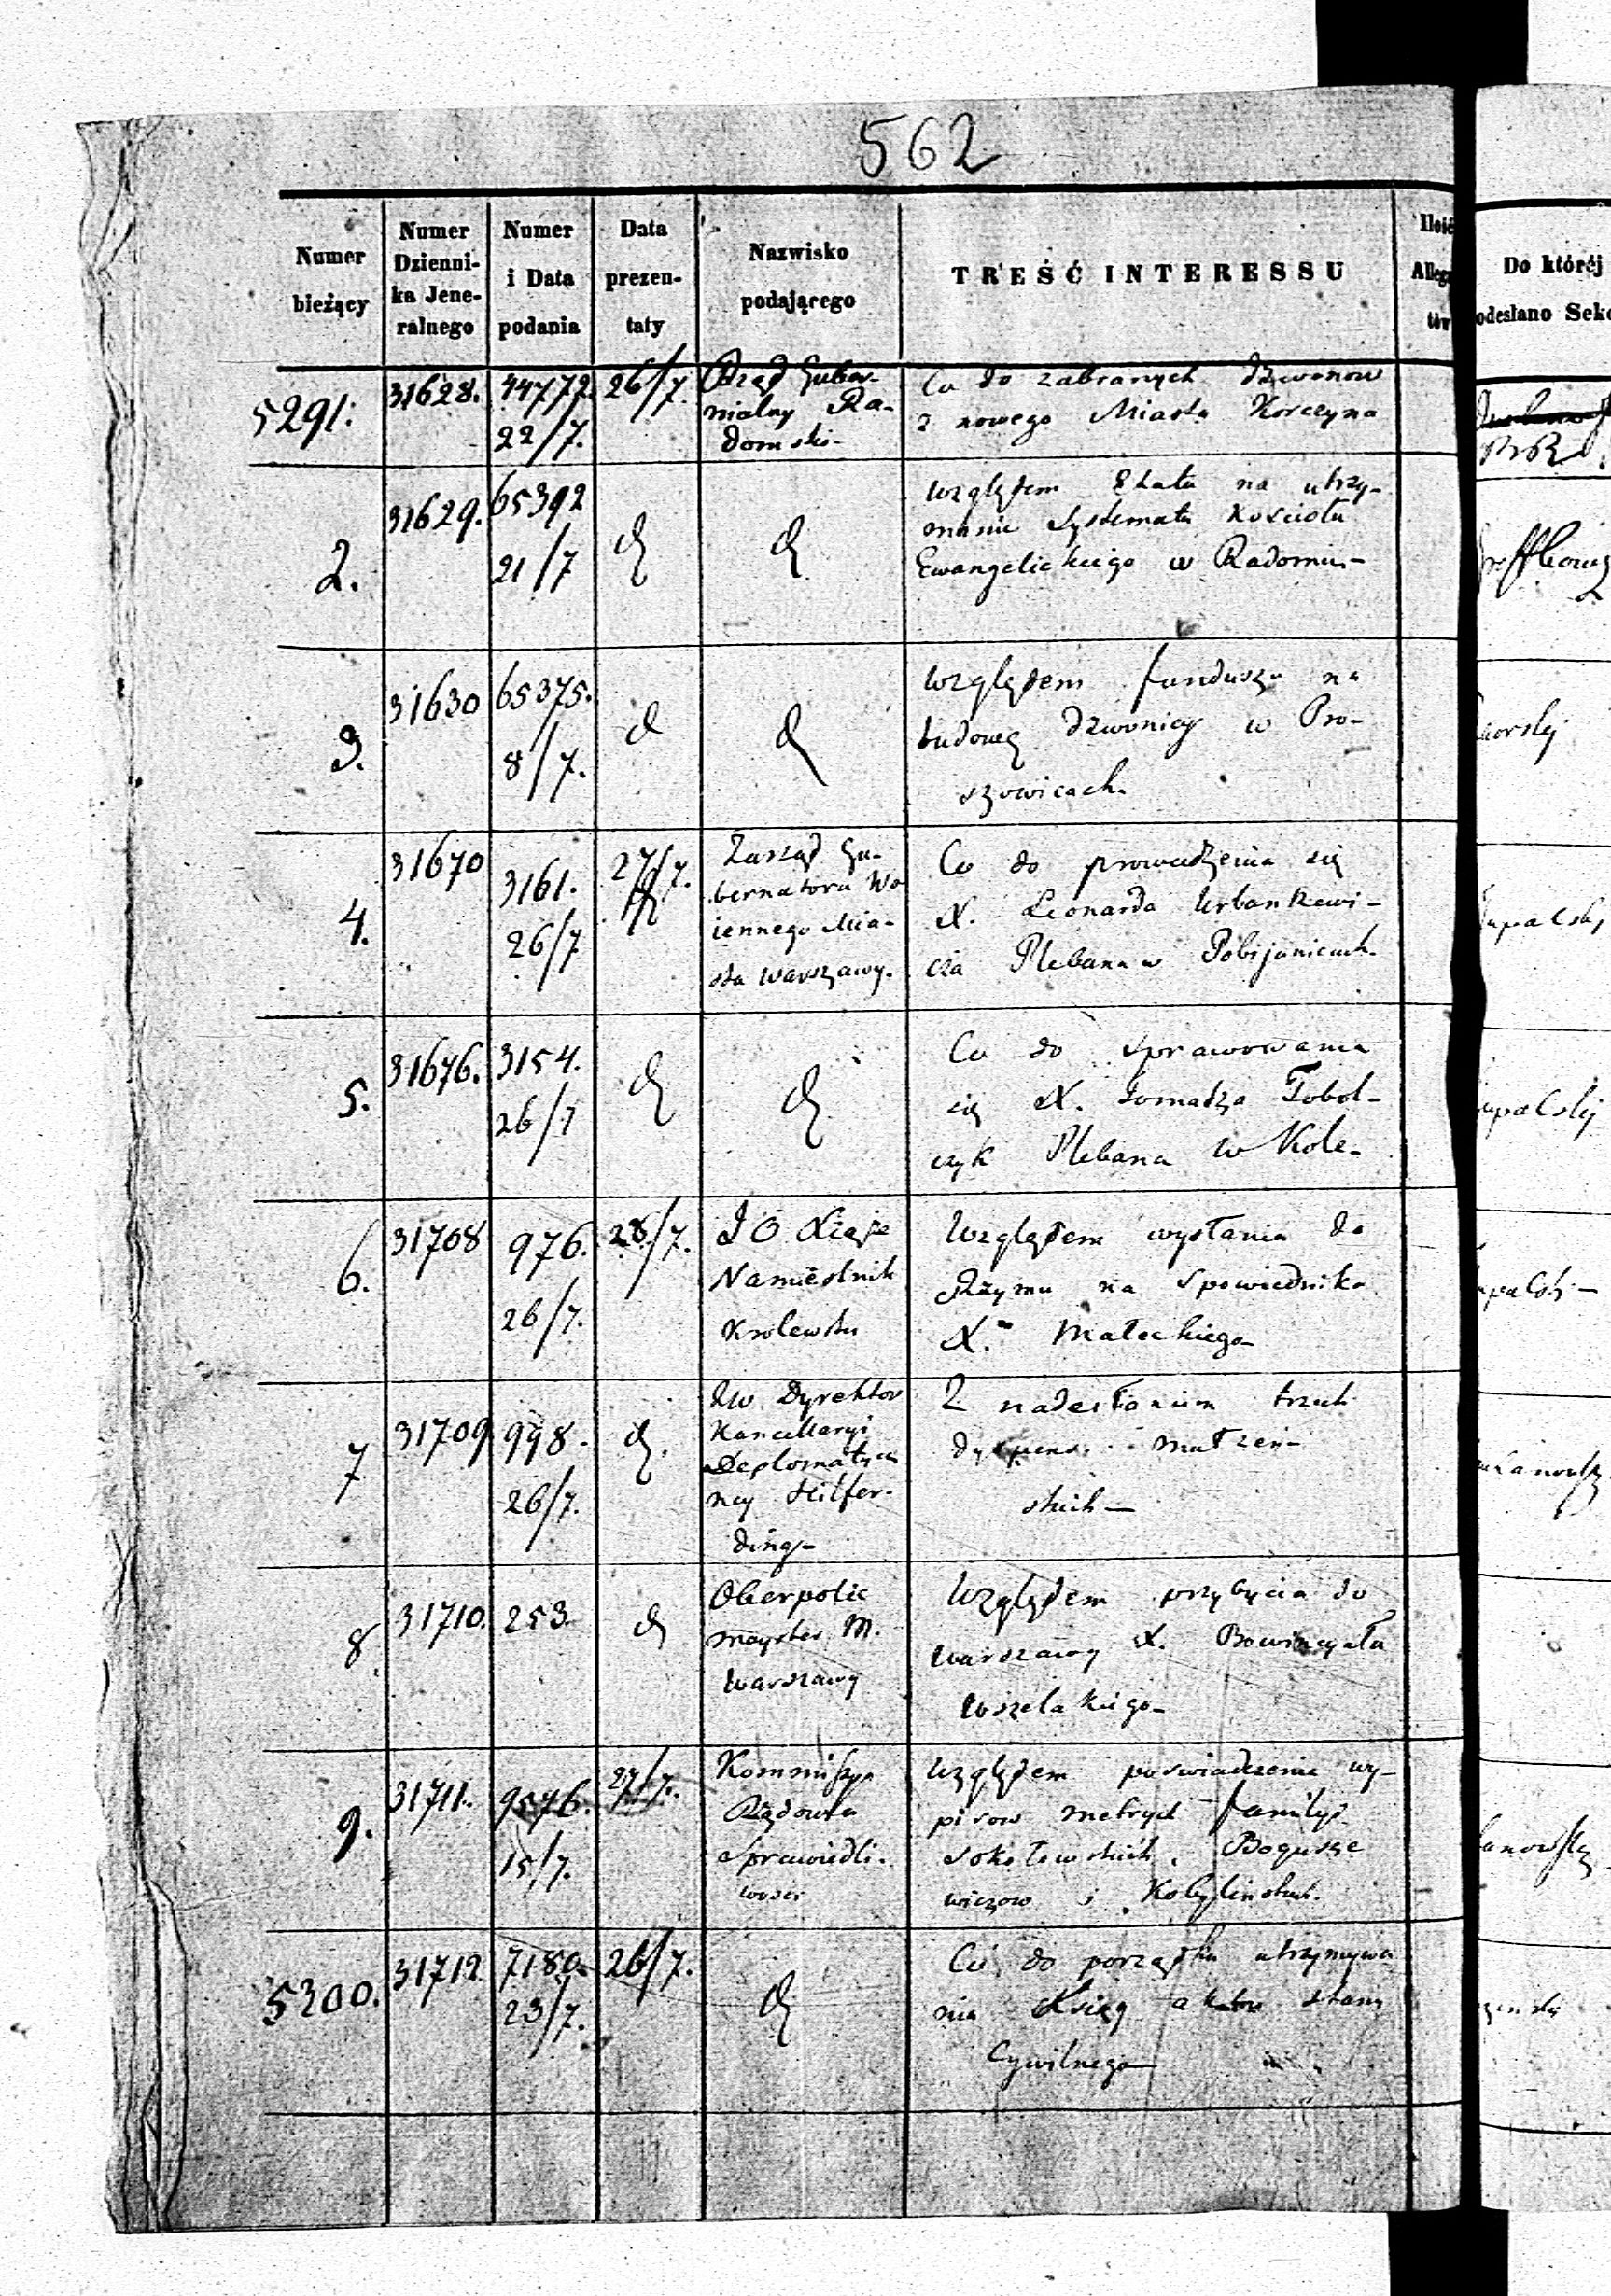 562
Numer bieżący
Numer Dzienni-ka Jene-ralnego
Numer i Data podania
Data prezen-taty
Nazwisko podającego
TREŚĆ INTERESSU
Ilość Alleg tów
Do któréj odesłano Sek
5291.
31628.
44772.
22/7.
26/7.
Rząd Guber-
nialny Ra-
domski-
Co do zabranych dzwonow
z nowego Miasta Korczyna
2.
31629.
65392
21/7
d
d
Względem Etatu na utrzy-
manie Systematu Kościoła
Ewangelickiego w Radomiu-
3.
31630
65375.
8/7.
d
d
Względem funduszu na
budowę dzwonicy w Pro-
szowicach.
4.
31670
3161.
26/7
27/7.
Zarząd Gu-
bernatora Wo
iennego Mia-
sta Warszawy.
Co do prowadzenia się
X. Leonarda Urbankiewi-
cza Plebana w Pabijanicach.
5.
31676.
3154.
26/7
d
d
Co do sprawowania
się X. Tomasza Tobol-
czyk Plebana w Kole-
6.
31708
976.
26/7.
28/7.
J O Xiąże
Namiestnik
Krolewski
Względem wysłania do
Rzymu na Spowiednika
X. Małeckiego-
7
31709
998.
26/7.
d.
Dyrektor
Kancellaryi
Deplomatycz
ney Hilfer-
ding-
Z nadesłaniem trzech
dyspens. małżeń-
skich-
8
31710.
253.
d
Oberpolic
mayster M.
Warszawy
Względem przybycia do
Warszawy X. Prowincyała
Wszelakiego-
9.
31711.
9576.
15/7.
27/7.
Kommissya
Rządowa
Sprawiedli-
wosci
Względem poswiadczenia wy-
pisow metryk familyi
Sokołowskich, Bogusze
wiczow i Kobylinskich.
5300.
31712.
7180.
23/7.
26/7.
d
Co do porządku utrzymywa
nia Ksiąg aktow stanu
Cywilnego